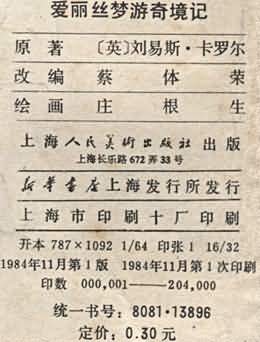 爱丽丝梦游奇境记
原著 〔英〕刘易斯·卡罗尔
改编 蔡体荣
绘画 庄根生
上海人民美术出版社出版
上海长乐路672弄33号
新华书店上海发行所发行
上海市印刷十厂印刷
开本 787×1092 1/64 印张 1 16/32
1984年11月第1版 1984年11月第1次印刷
印数 000,001——204,000
统一书号：8081·13896
定价：0.30元